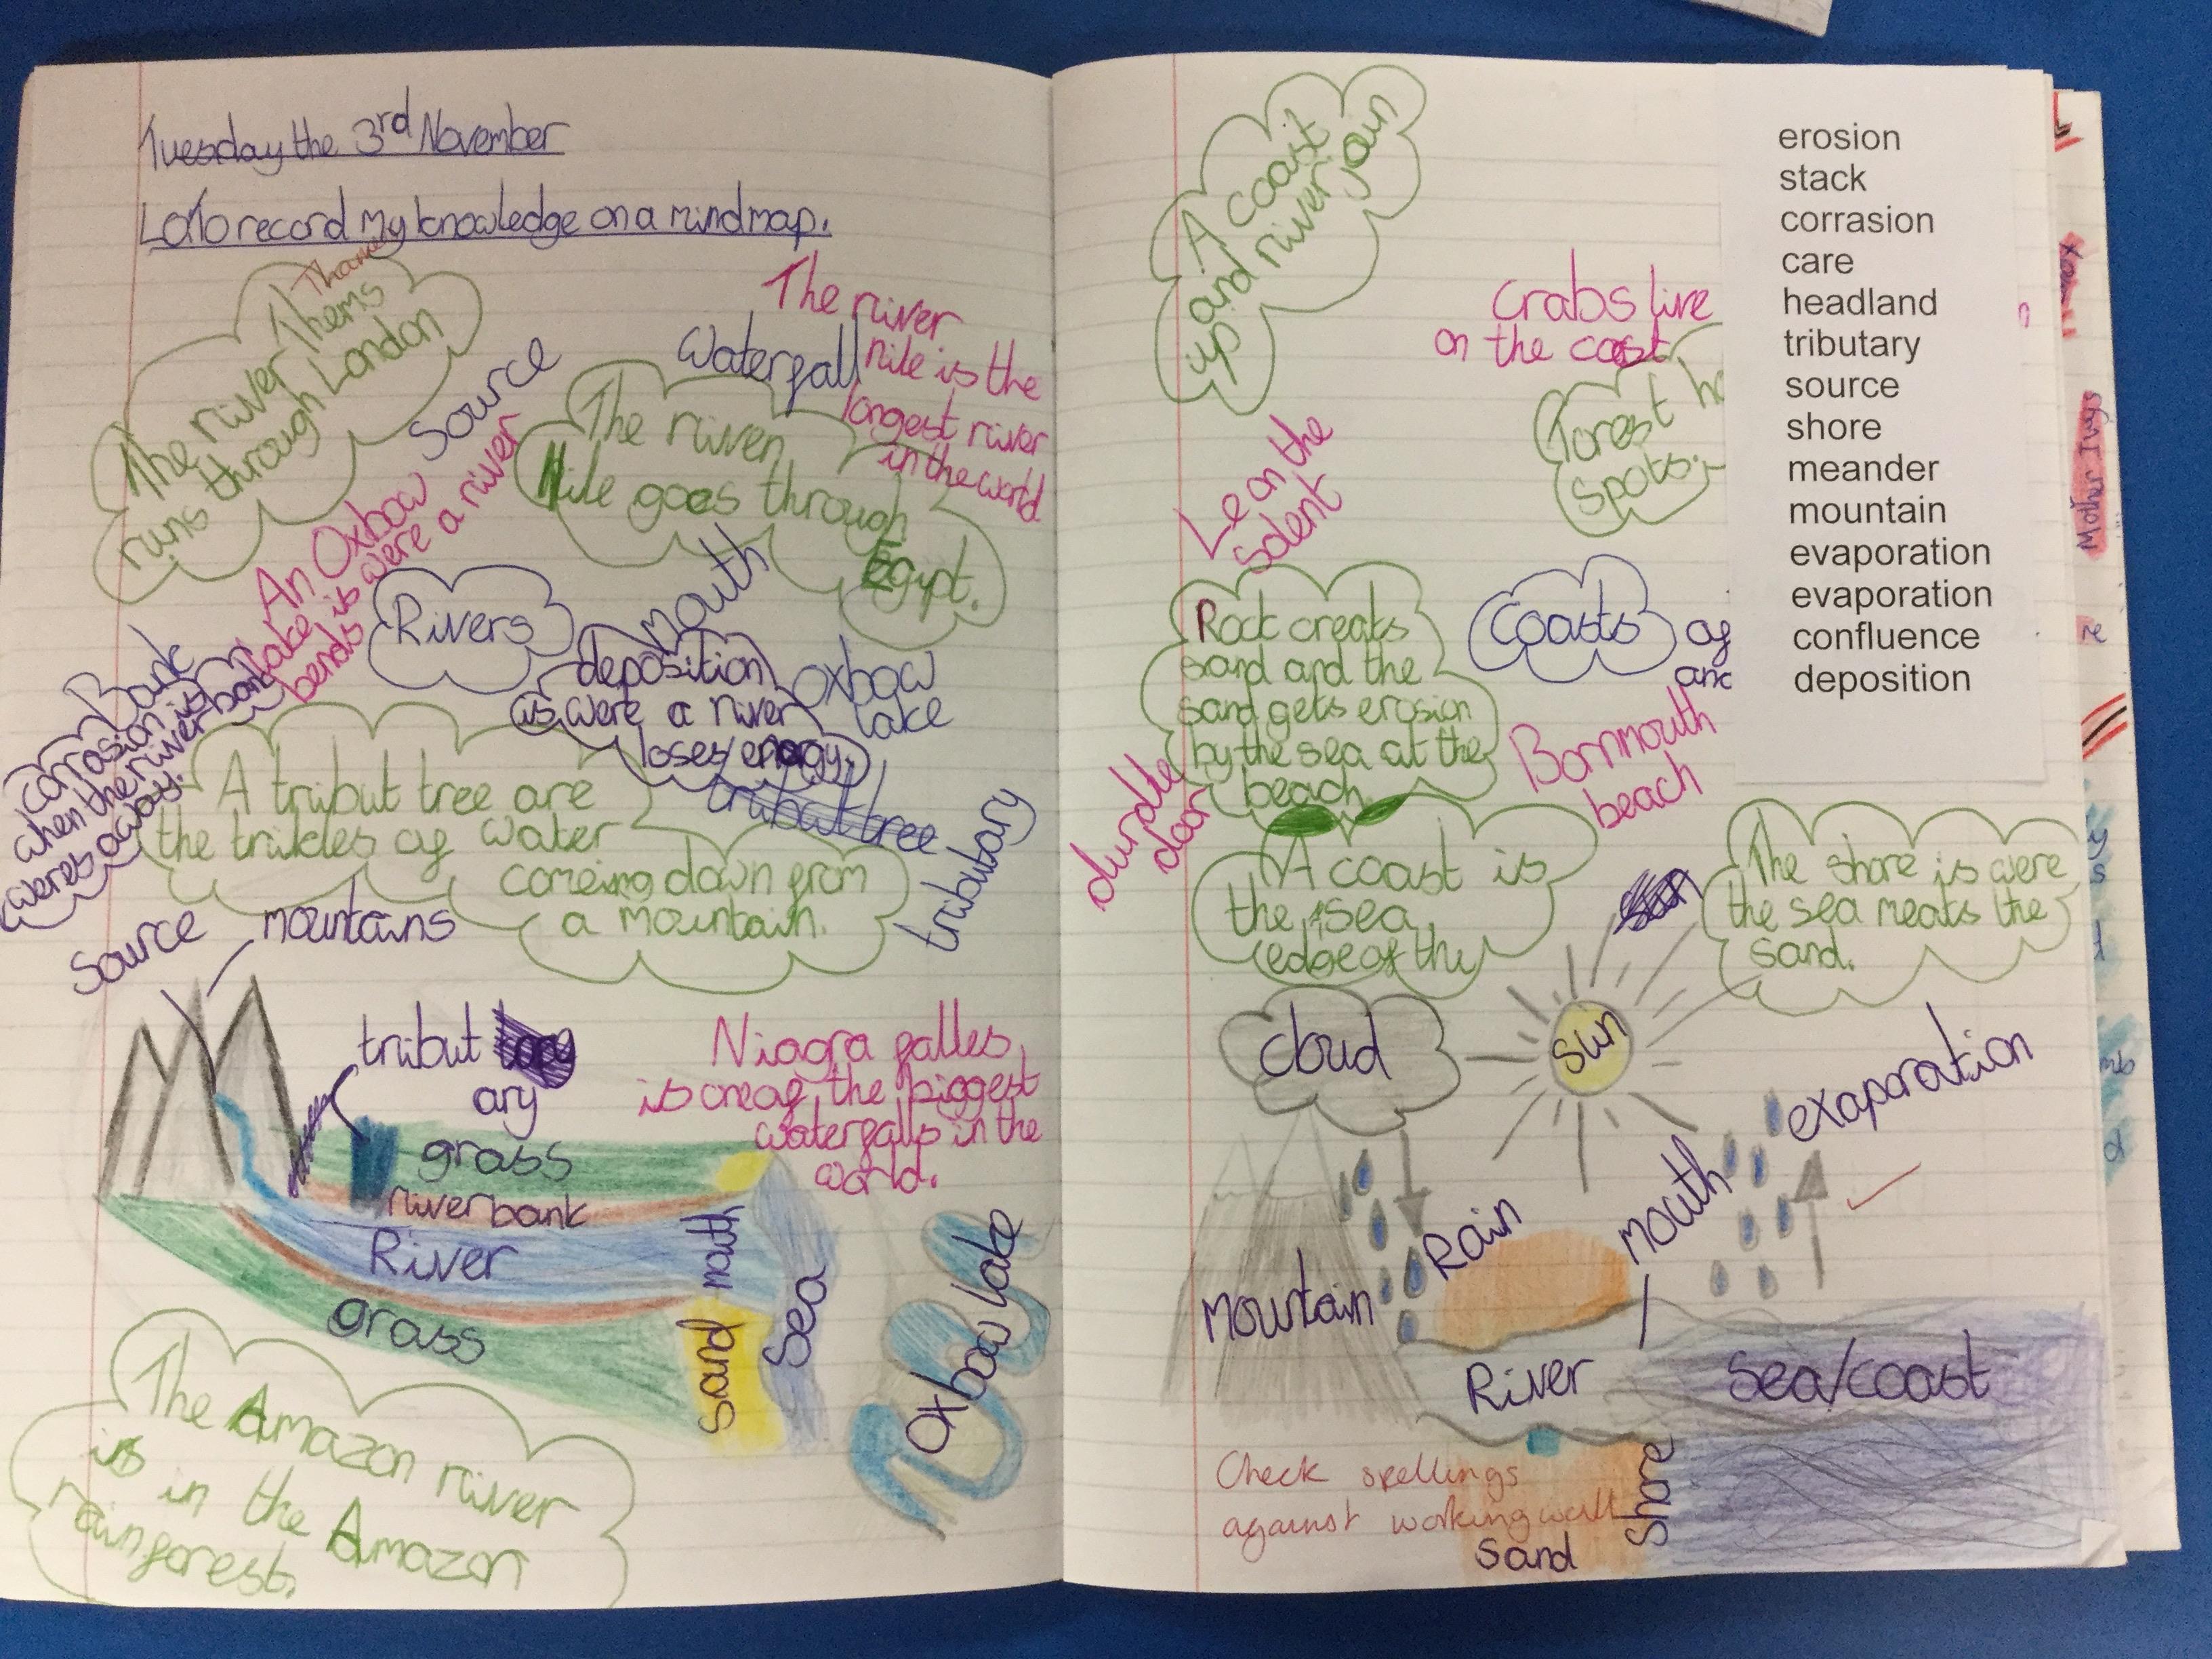 Tuesday the 3rd November
LO To record my knowledge on a mindmap.
Thames
The river Thems
runs through London
Source
Waterfall
The river
nile is the
longest river
in the world
The river
Nile goes through
Egypt.
An Oxbow
lake is were a river
bends
Rivers
mouth
deposition
is were a river
loses energy.
oxbow
lake
Bank
corrasion is
when the river bank
weres away.
A tribut tree are
the trikles of water
comeing down from
a mountain.
tribut tree
tributary
Source
mountains
tribut
ary
grass
riverbank
River
grass
mouth
sand
Sea
Niagra falles
is one of the biggest
waterfalls in the
world.
Oxbow lake
The Amazon river
is in the Amazon
rainforest.
A coast
and river join
up
crabs live
on the coast
Forest
spots.
Le on the
solent
Rock creats
sand and the
sand gets erosion
by the sea at the
beach
Coasts
of
Bornmouth
beach
durdle
door
A coast is
the sea
(edge of the
sun
The shore is were
the sea meats the
sand.
cloud
sun
exaporation
Rain
mouth
Mountain
River
Sea/coast
Check spellings
against working wall
Shore
Sand
erosion
stack
corrasion
care
headland
tributary
source
shore
meander
mountain
evaporation
evaporation
confluence
deposition
Mother Ivys